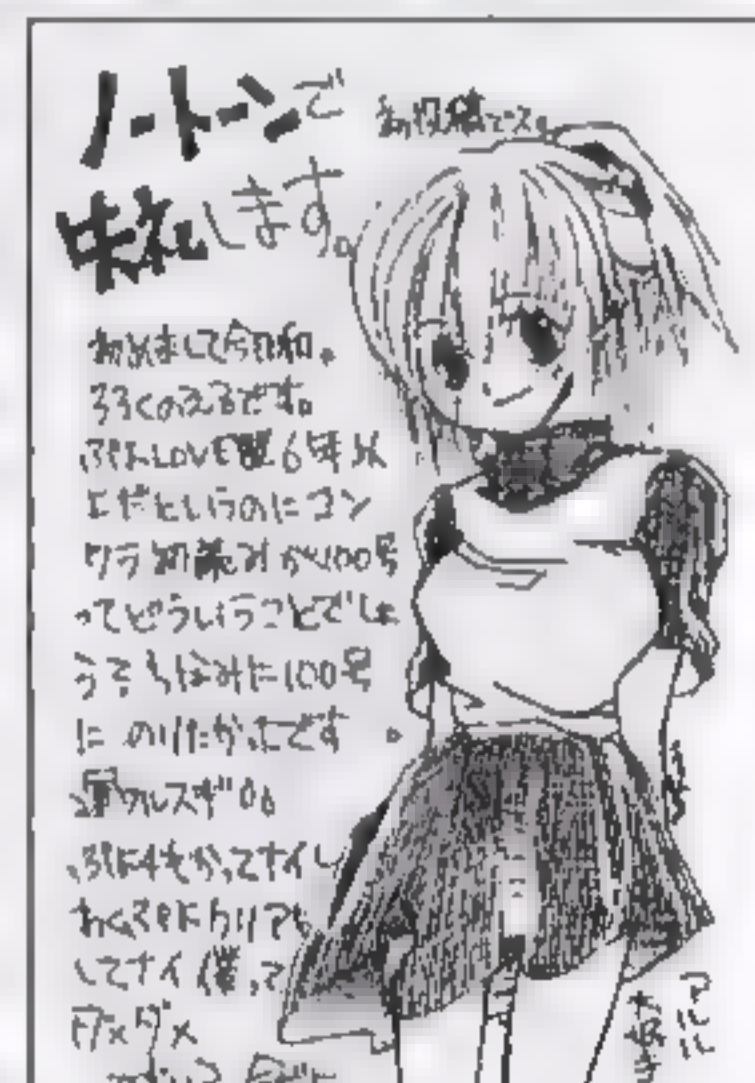 ノートーンで
初投稿でス。
失礼します。
初めまして今日和。
ろろくのえるです。
ぷよLOVE歴6年以
上だというのにコン
ワラ初読みが100号
ってどういうことでしょ
う？ちなみに100号
にのりたかったです。
運ワルスギ。
ぷよ4もかってナイし
わくぷよにクリアも
してナイ僕って
ダメダメ
アルル
大好き